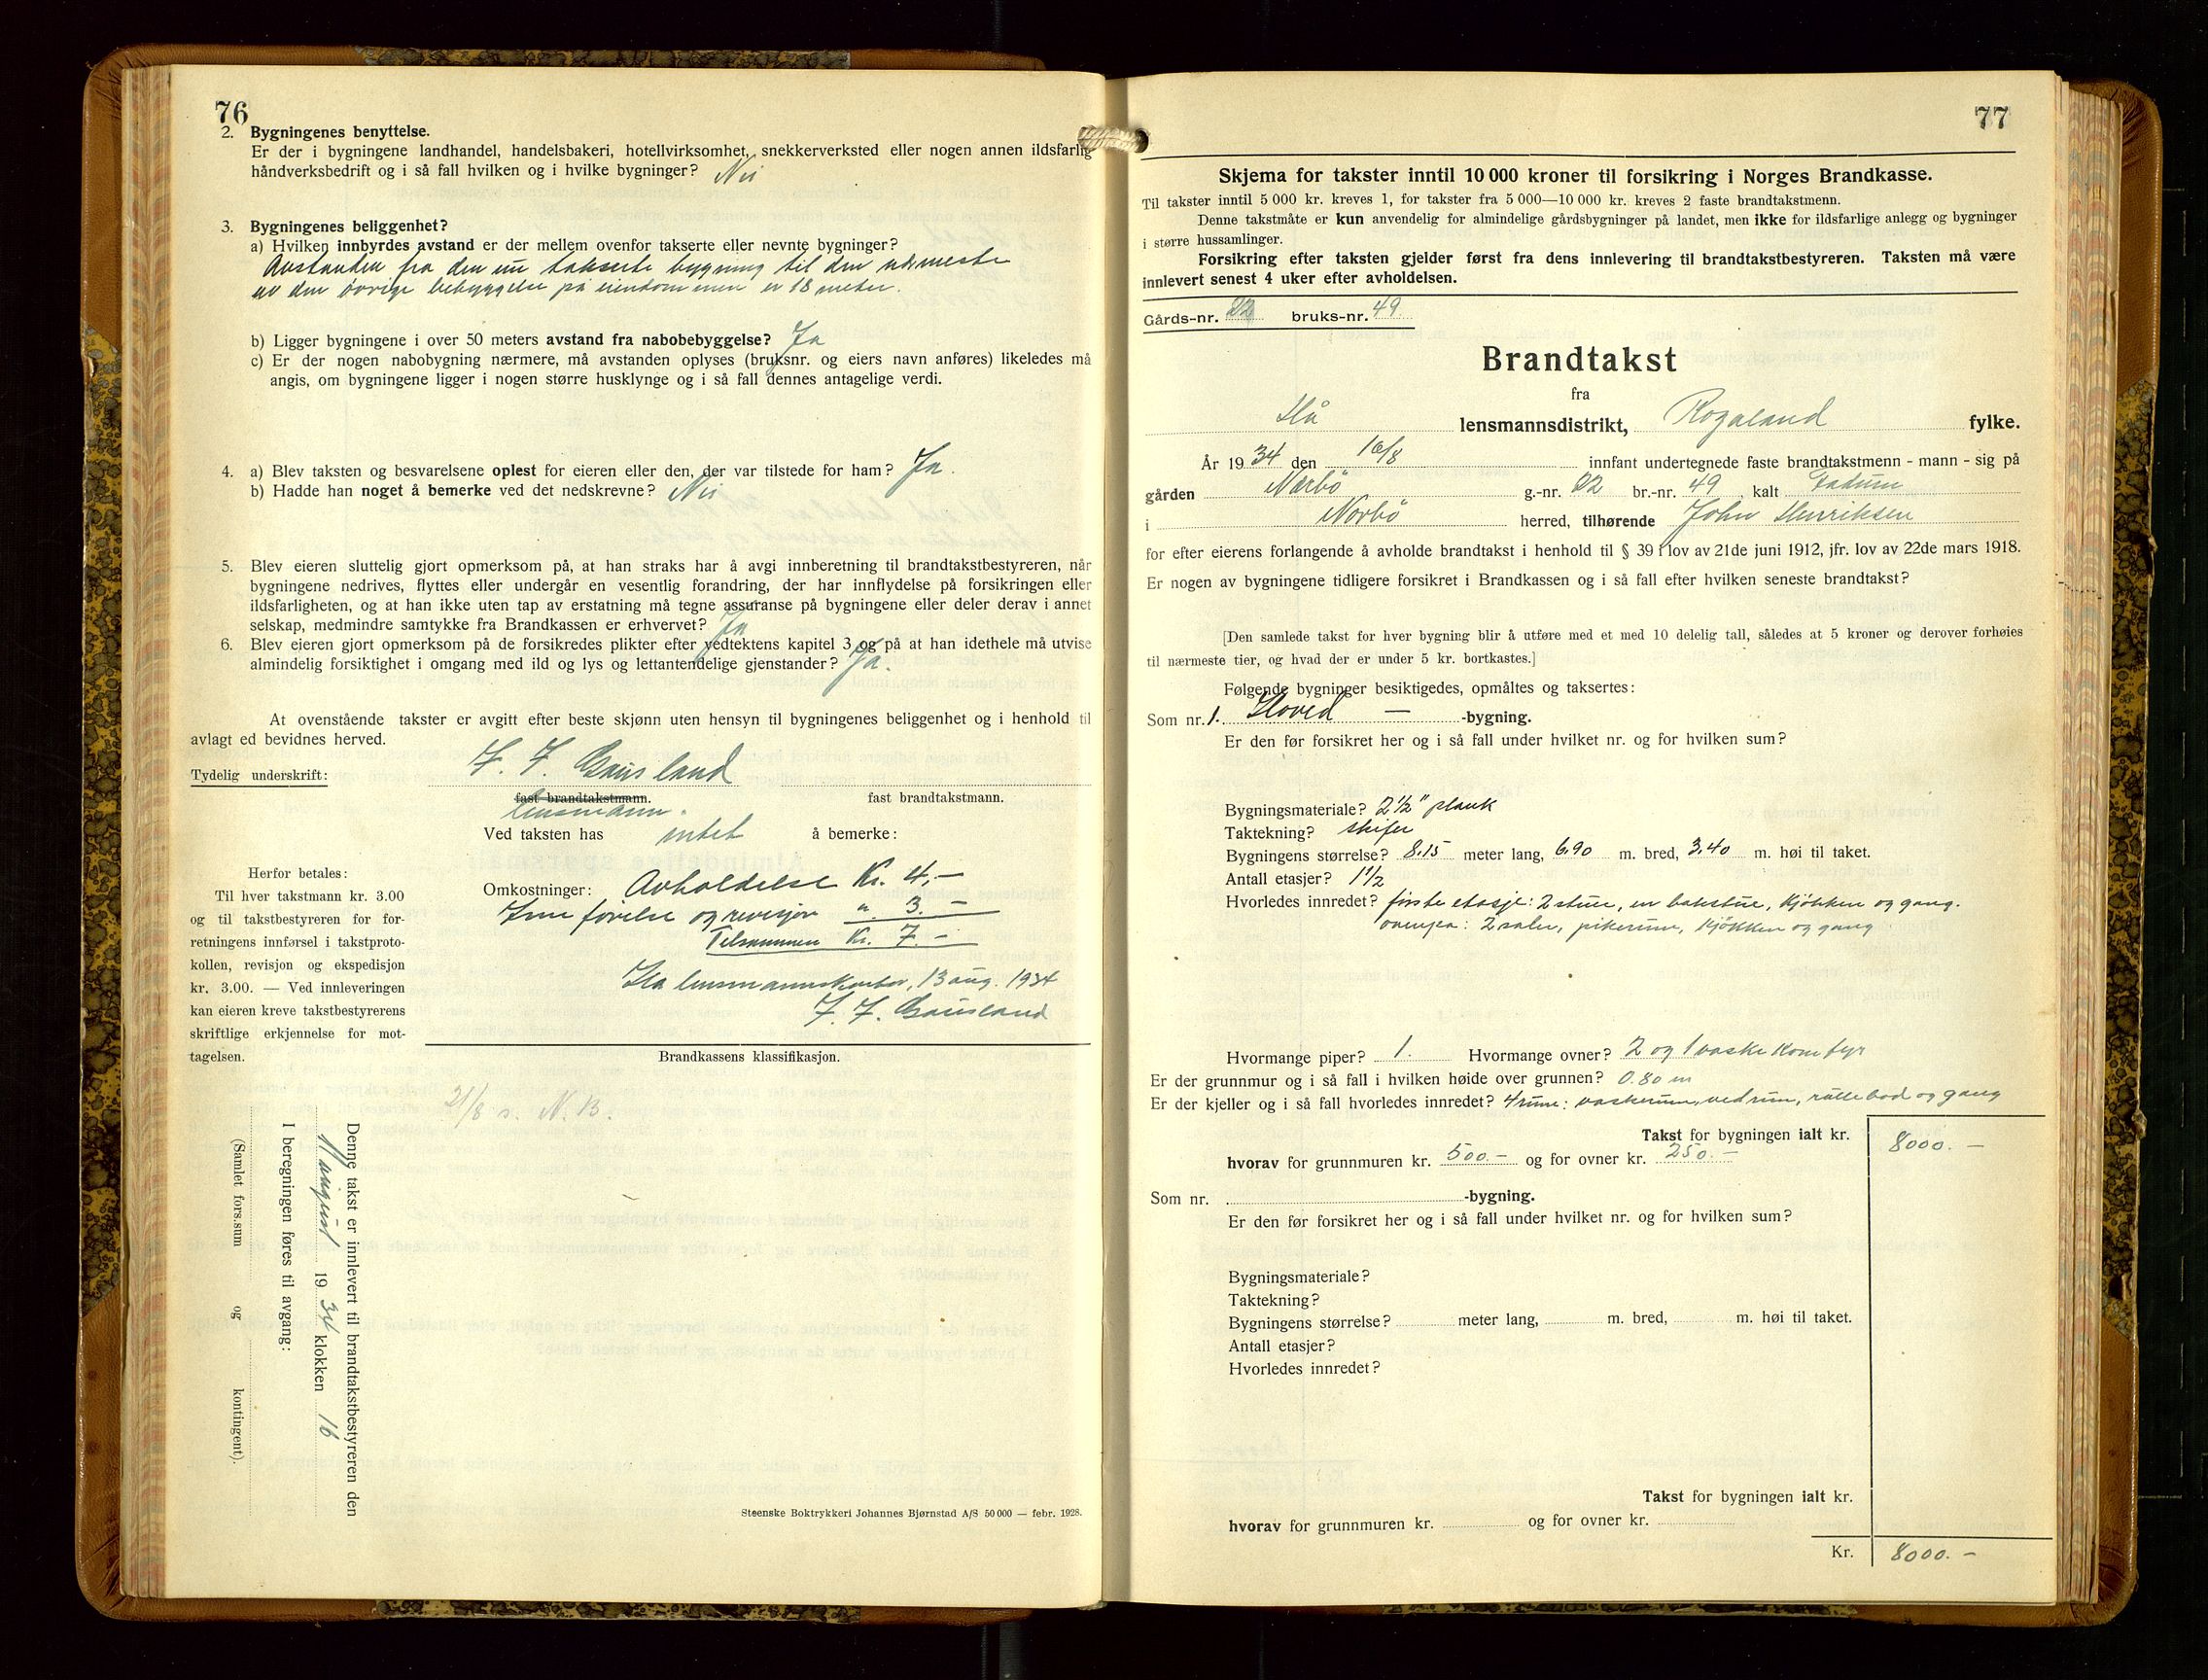 76
2. Bygningenes benyttelse.
Er der i bygningene landhandel, handelsbakeri, hotellvirksomhet, snekkerverksted eller nogen annen ildsfarlig
håndverksbedrift og i så fall hvilken og i hvilke bygninger? Nei
3. Bygningenes beliggenhet?
a) Hvilken innbyrdes avstand er der mellem ovenfor takserte eller nevnte bygninger?
Avstanden fra den nu takserte bygning til den nærmeste
av den øvrige bebyggelse på eiendommen er 18 meter.
b) Ligger bygningene i over 50 meters avstand fra nabobebyggelse? Ja
c) Er der nogen nabobygning nærmere, må avstanden oplyses (bruksnr. og eiers navn anføres) likeledes må
angis, om bygningene ligger i nogen større husklynge og i så fall dennes antagelige verdi.
4. a) Blev taksten og besvarelsene oplest for eieren eller den, der var tilstede for ham? Ja.
b) Hadde han noget å bemerke ved det nedskrevne? Nei
5. Blev eieren sluttelig gjort opmerksom på, at han straks har å avgi innberetning til brandtakstbestyreren, når
bygningene nedrives, flyttes eller undergår en vesentlig forandring, der har innflydelse på forsikringen eller
ildsfarligheten, og at han ikke uten tap av erstatning må tegne assuranse på bygningene eller deler derav i annet
selskap, medmindre samtykke fra Brandkassen er erhvervet? Ja
6. Blev eieren gjort opmerksom på de forsikredes plikter efter vedtektens kapitel 3 og på at han idethele må utvise
almindelig forsiktighet i omgang med ild og lys og lettantendelige gjenstander? Ja.
At ovenstående takster er avgitt efter beste skjønn uten hensyn til bygningenes beliggenhet og i henhold til
avlagt ed bevidnes herved.
Tydelig underskrift: F. F. Gausland
fast brandtakstmann. fast brandtakstmann.
lensmann.
Ved taksten has intet å bemerke:
Omkostninger: Avholdelse Kr. 4,-
Inn førelse og revisjon " 3.-
Tilsammen Kr. 7.-
Hå lensmannskontor, 13 aug. 1934
F. F. Gausland
Herfor betales:
Til hver takstmann kr. 3.00
og til takstbestyreren for for-
retningens innførsel i takstproto-
kollen, revisjon og ekspedisjon
kr. 3.00. — Ved innleveringen
kan eieren kreve takstbestyrerens
skriftlige erkjennelse for mot-
tagelsen.
Brandkassens klassifikasjon.
21/8 s. N. B.
Denne takst er innlevert til brandtakstbestyreren den
august 1934 klokken 16
I beregningen føres til avgang:
(Samlet fors.sum og kontingent).
Steenske Boktrykkeri Johannes Bjørnstad A/S 50 000 — febr. 1928.
77
Skjema for takster inntil 10 000 kroner til forsikring i Norges Brandkasse.
Til takster inntil 5 000 kr. kreves 1, for takster fra 5 000—10 000 kr. kreves 2 faste brandtakstmenn.
Denne takstmåte er kun anvendelig for almindelige gårdsbygninger på landet, men ikke for ildsfarlige anlegg og bygninger
i større hussamlinger.
Forsikring efter taksten gjelder først fra dens innlevering til brandtakstbestyreren. Taksten må være
innlevert senest 4 uker efter avholdelsen.
Gårds-nr. 22 bruks-nr. 49.
Brandtakst
fra
Hå lensmannsdistrikt, Rogaland fylke.
År 1934 den 10/8 innfant undertegnede faste brandtakstmenn - mann - sig på
gården Nærbö g.-nr. 22 br.-nr. 49 kalt
i Nærbö herred, tilhørende John Henriksen
for efter eierens forlangende å avholde brandtakst i henhold til § 39 i lov av 21de juni 1912, jfr. lov av 22de mars 1918.
Er nogen av bygningene tidligere forsikret i Brandkassen og i så fall efter hvilken seneste brandtakst?
[Den samlede takst for hver bygning blir å utføre med et med 10 delelig tall, således at 5 kroner og derover forhøies
til nærmeste tier, og hvad der er under 5 kr. bortkastes.]
Følgende bygninger besiktigedes, opmåltes og taksertes:
Som nr. 1. Hoved — -bygning.
Er den før forsikret her og i så fall under hvilket nr. og for hvilken sum?
Bygningsmateriale? 2 1/2" plank
Taktekning? skifer
Bygningens størrelse? 8.15 meter lang, 6.90 m. bred, 3.40 m. høi til taket.
Antall etasjer? 1 1/2
Hvorledes innredet? förste etasje: 2 stuer, en bakstue, kjökken og gang.
ovenpå: 2 saler, pikerum, kjökken og gang
Hvormange piper? 1. Hvormange ovner? 2 og 1 vaskekomfyr
Er der grunnmur og i så fall i hvilken høide over grunnen? 0.80 m
Er der kjeller og i så fall hvorledes innredet? 4 rum: vaskerum, vedrum, rullebod og gang
Takst for bygningen ialt kr. 8000.-
hvorav for grunnmuren kr. 500.- og for ovner kr. 250.-
Som nr. -bygning.
Er den før forsikret her og i så fall under hvilket nr. og for hvilken sum?
Bygningsmateriale?
Taktekning?
Bygningens størrelse? meter lang, m. bred, m. høi til taket.
Antall etasjer?
Hvorledes innredet?
Takst for bygningen ialt kr.
hvorav for grunnmuren kr. og for ovner kr.
Kr. 8000.-